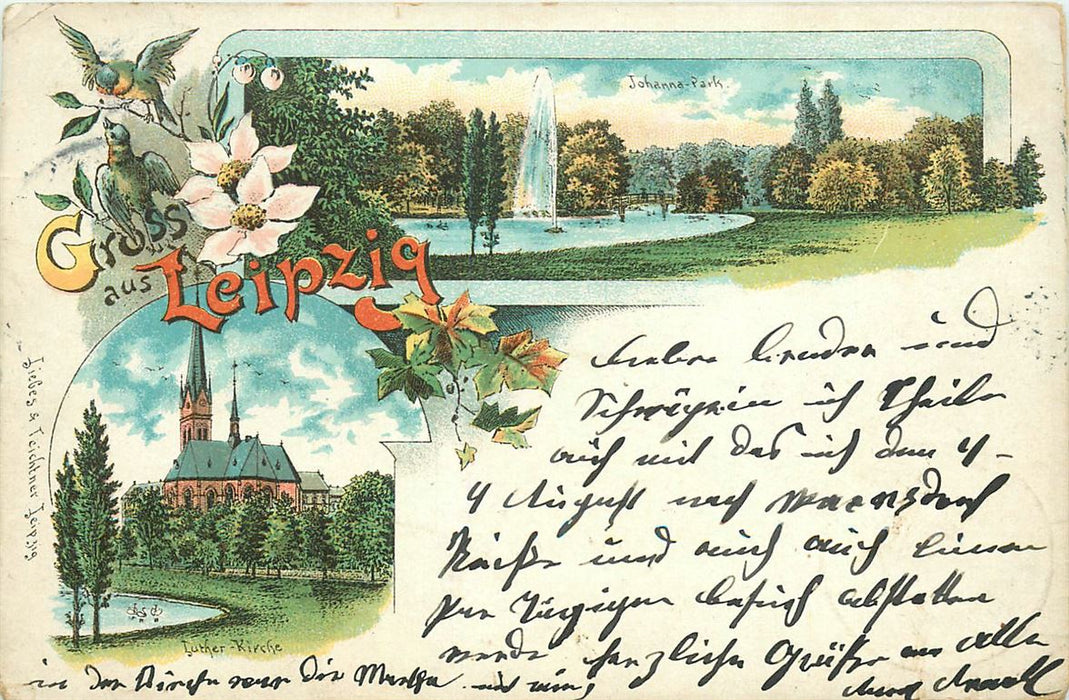 Johanna-Park.
Gruss
aus Leipzig
Liebes & Teichtner Leipzig
Luther-Kirche
bruder und
Schwägerin ich Theile
auch mit das ich den 4
4 August nach Warnsdorf
Reise und auch auch einen
besuch abstatten
werde herzliche Grüße an Alle
in der Kirche war die Martha